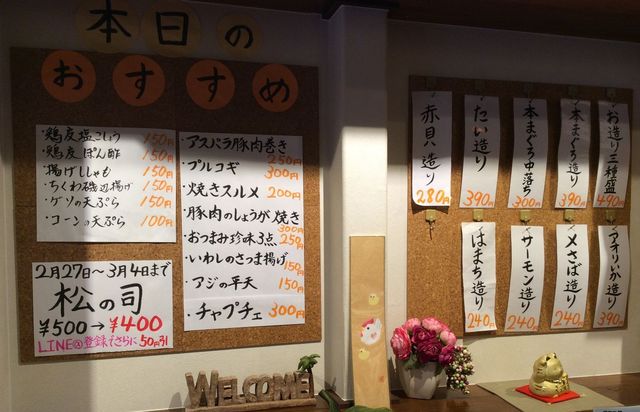 本日の
おすすめ
・鶏皮塩こしょう 150円
・鶏皮ぽん酢 150円
・揚げししゃも 150円
・ちくわ磯辺揚げ 150円
・ゲソの天ぷら 150円
・コーンの天ぷら 100円
・アスパラ豚肉巻き 250円
・プルコギ 300円
・焼きスルメ 200円
・豚肉のしょうが焼き 300円
・おつまみ珍味3点 250円
・いわしのさつま揚げ 150円
・アジの平天 150円
・チャプチェ 300円
2月27日〜3月4日まで
松の司
¥500→¥400
LINE@登録でさらに50円引
WELCOME!
お造り三種盛 490円
本まぐろ造り 390円
本まぐろ中落ち 300円
たい造り 390円
赤貝造り 280円
アオリいか造り 390円
〆さば造り 240円
サーモン造り 240円
はまち造り 240円